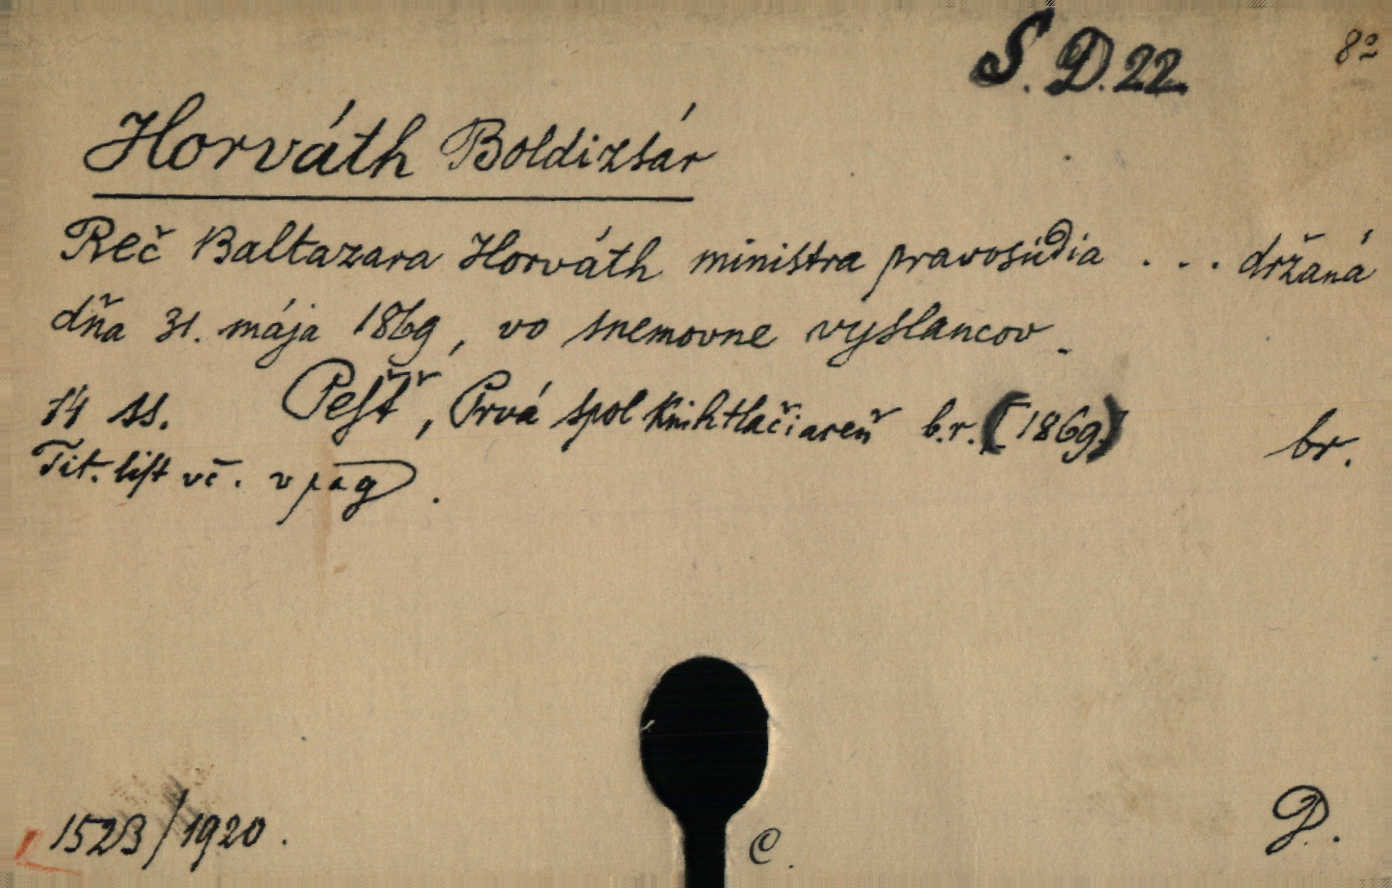 S. D. 22 8º
Horváth Boldizsár
Reč Baltazara Horváth ministra pravosúdia . . . držaná
dňa 31. mája 1869, vo snemovne vyslancov.
14 ss. Pešť, Prvá spol knihtlačiareň b.r. (1869) br.
Tit. list vč. v pag.
1523/1920. C. D.